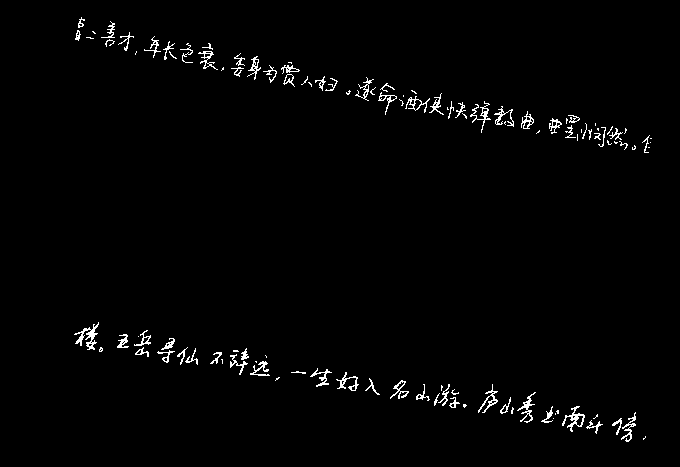 二善才，年长色衰，委身为贾人妇。遂命酒使快弹数曲，曲罢悯然。
楼。五岳寻仙不辞远，一生好入名山游。庐山秀出南斗傍，